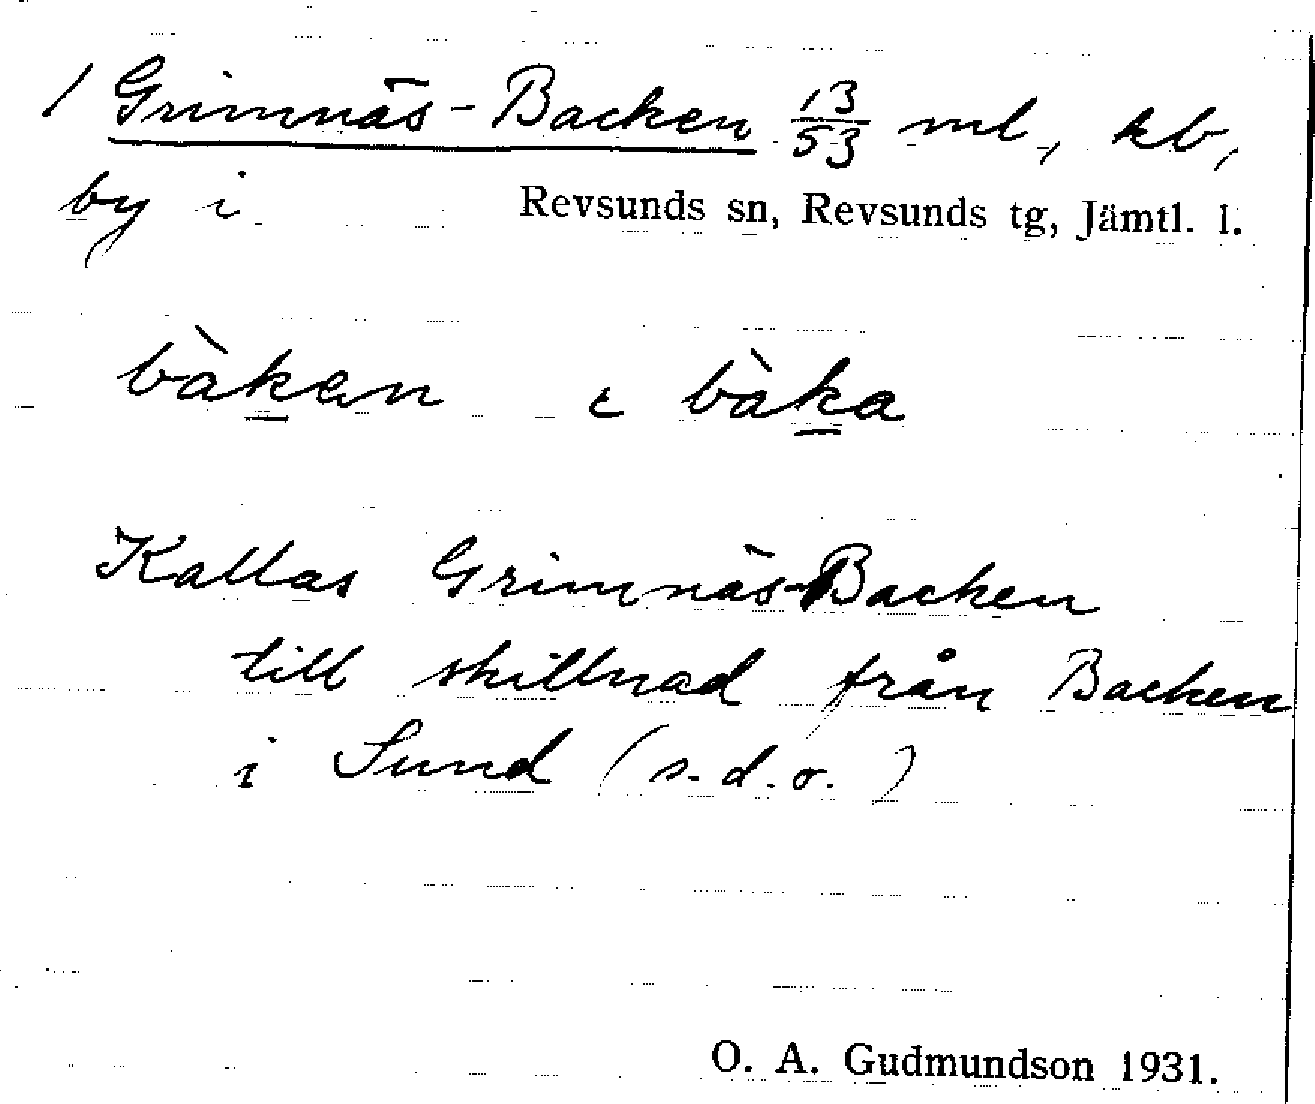 / Grimnäs-Backen 13/53 ml, kb,
by i Revsunds sn, Revsunds tg, Jämtl. l.
bàkan i bàka
Kallas Grimnäs-Backen
till skillnad från Backen
i Sund (s.d.o.)
O. A. Gudmundson 1931.